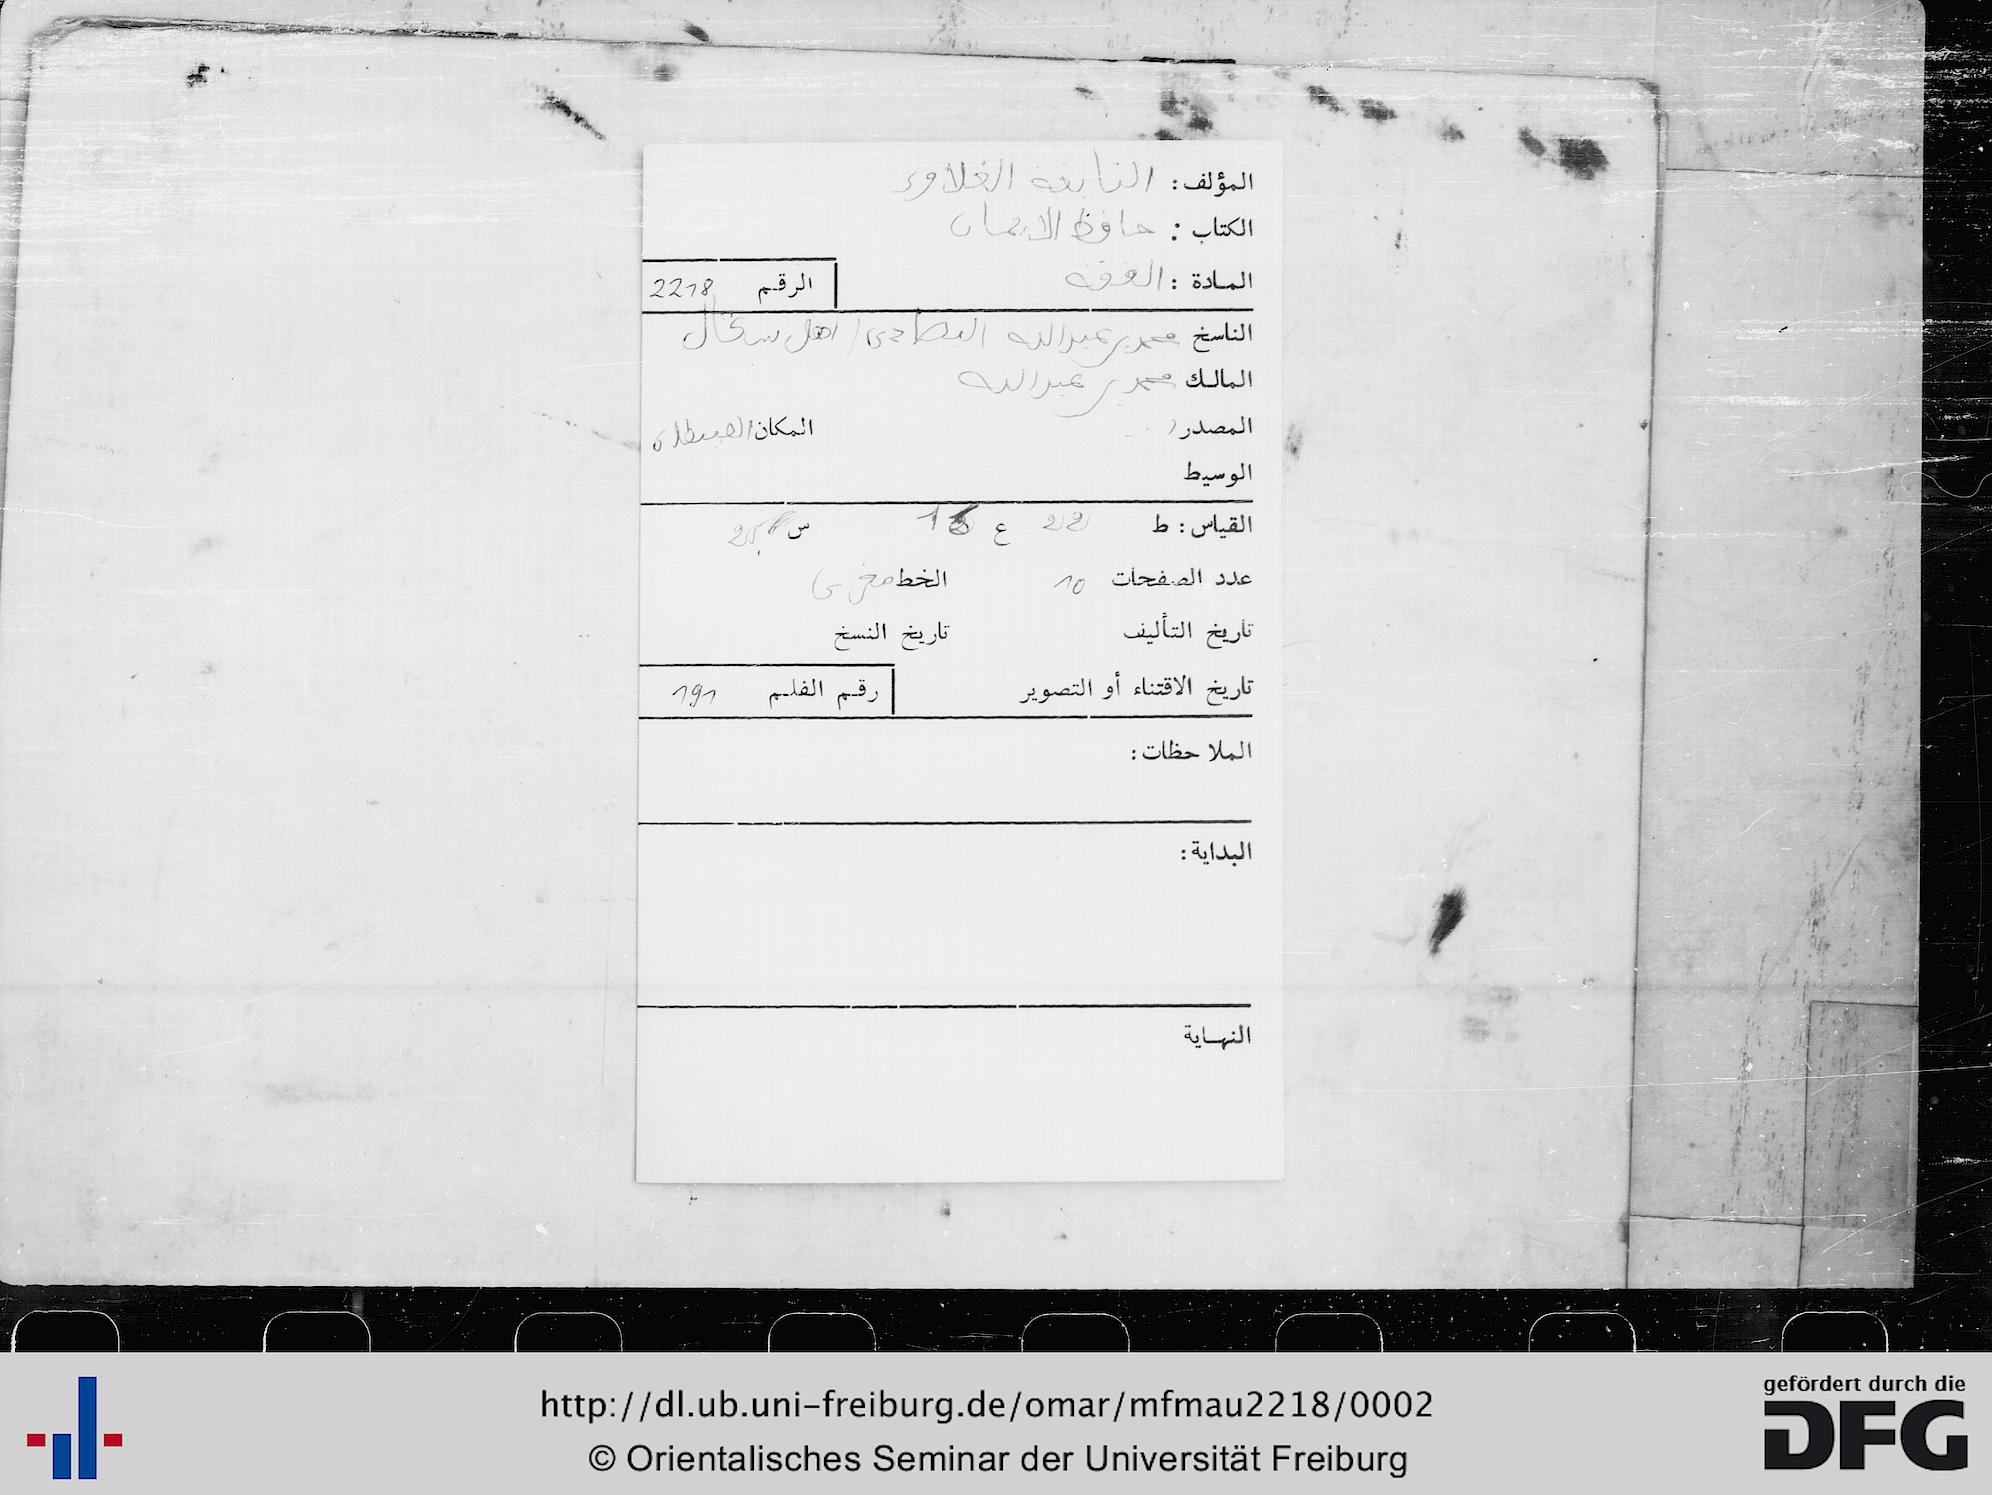 المؤلف: النابغة الغلاوي
الكتاب: حافظ الايمان
المادة: الفقه
الرقم 2218
الناسخ محمد بن عبدالله اهل
المالك محمد بن عبدالله
المصدر المكان
الوسيط
القياس: ط 22 ع س
عدد الصفحات 10 الخط مغربي
تاريخ التأليف تاريخ النسخ
تاريخ الاقتناء أو التصوير رقم الفلم 191
الملاحظات:
البداية:
النهاية
http://dl.ub.uni-freiburg.de/omar/mfmau2218/0002
© Orientalisches Seminar der Universität Freiburg
gefördert durch die
DFG